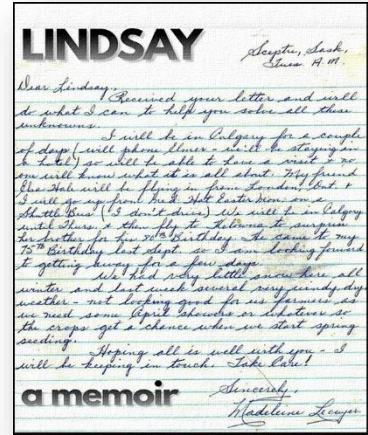 LINDSAY
Sceptre, Sask,
Tues. A.M.
Dear Lindsay,
Received your letter and will
do what I can to help you solve all these
unknowns.
I will be in Calgary for a couple
of days (will phone Elmer - will be staying in
a hotel) so will be able to have a visit & no
one will know what it is all about. My friend
Elva Hale will be flying in from London, Ont. &
I will go up from Med. Hat Easter Mon. on a
Shuttle Bus (I don't drive) We will be in Calgary
until Thurs. & then fly to Kelowna to surprise
her brother for his 90th Birthday. He came to my
75th Birthday last Sept so I am looking forward
to getting away for a few days.
We had very little snow here all
winter and last week several very windy dry
weather - not looking good for us farmers as
we need some April showers or whatever so
the crops get a chance when we start spring
seeding.
Hoping all is well with you - I
will be keeping in touch. Take Care!
a memoir
Sincerely,
Madeleine